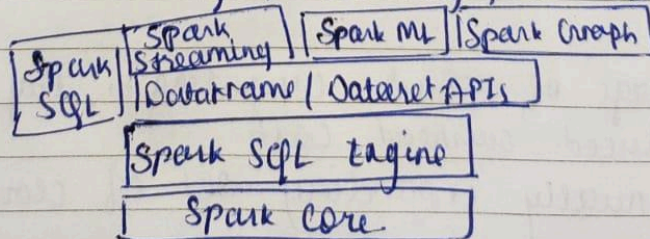 Spark SQL
Spark Streaming
Spark ML
Spark Graph
Dataframe / Dataset APIs
Spark SQL Engine
Spark Core